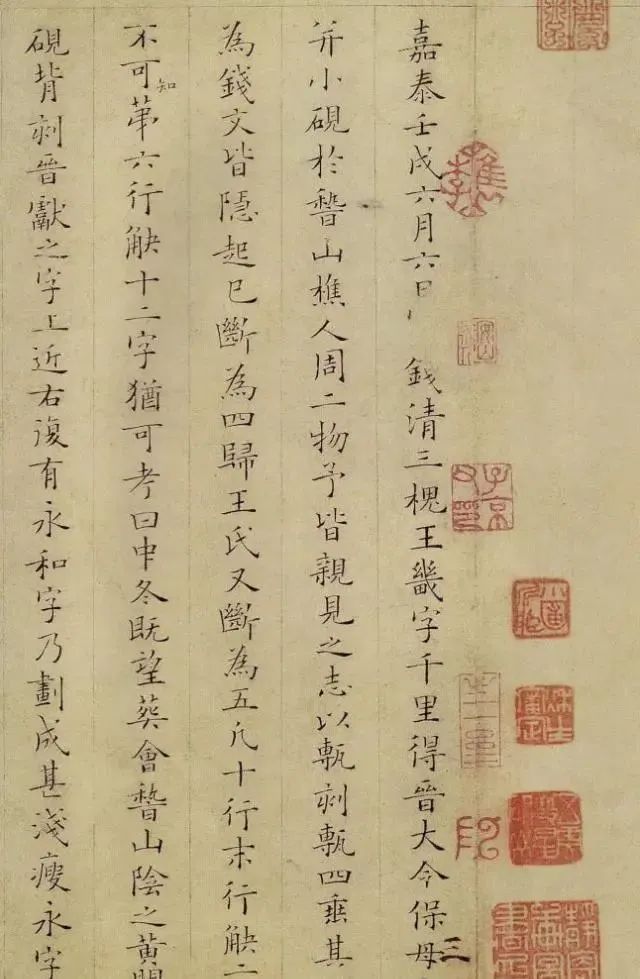 嘉泰壬戌六月六日錢清三槐王畿字千里得晉大令保母
并小硯於稽山樵人周二物予皆親見之志以甎刻甎四垂其
為錢文皆隱起已斷為四歸王氏又斷為五凡十行末行觖二
不可知第六行觖十二字猶可考曰中冬既望葬會稽山陰之黃
硯背刻晉獻之字上近右復有永和字乃劃成甚淺瘦永字
三
檇李
子京父印